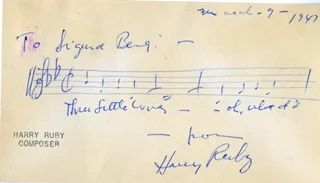 March - 9 - 1947
To Sigurd Berg: -
"Three Little Words" -
HARRY RUBY
COMPOSER
- from
Harry Ruby